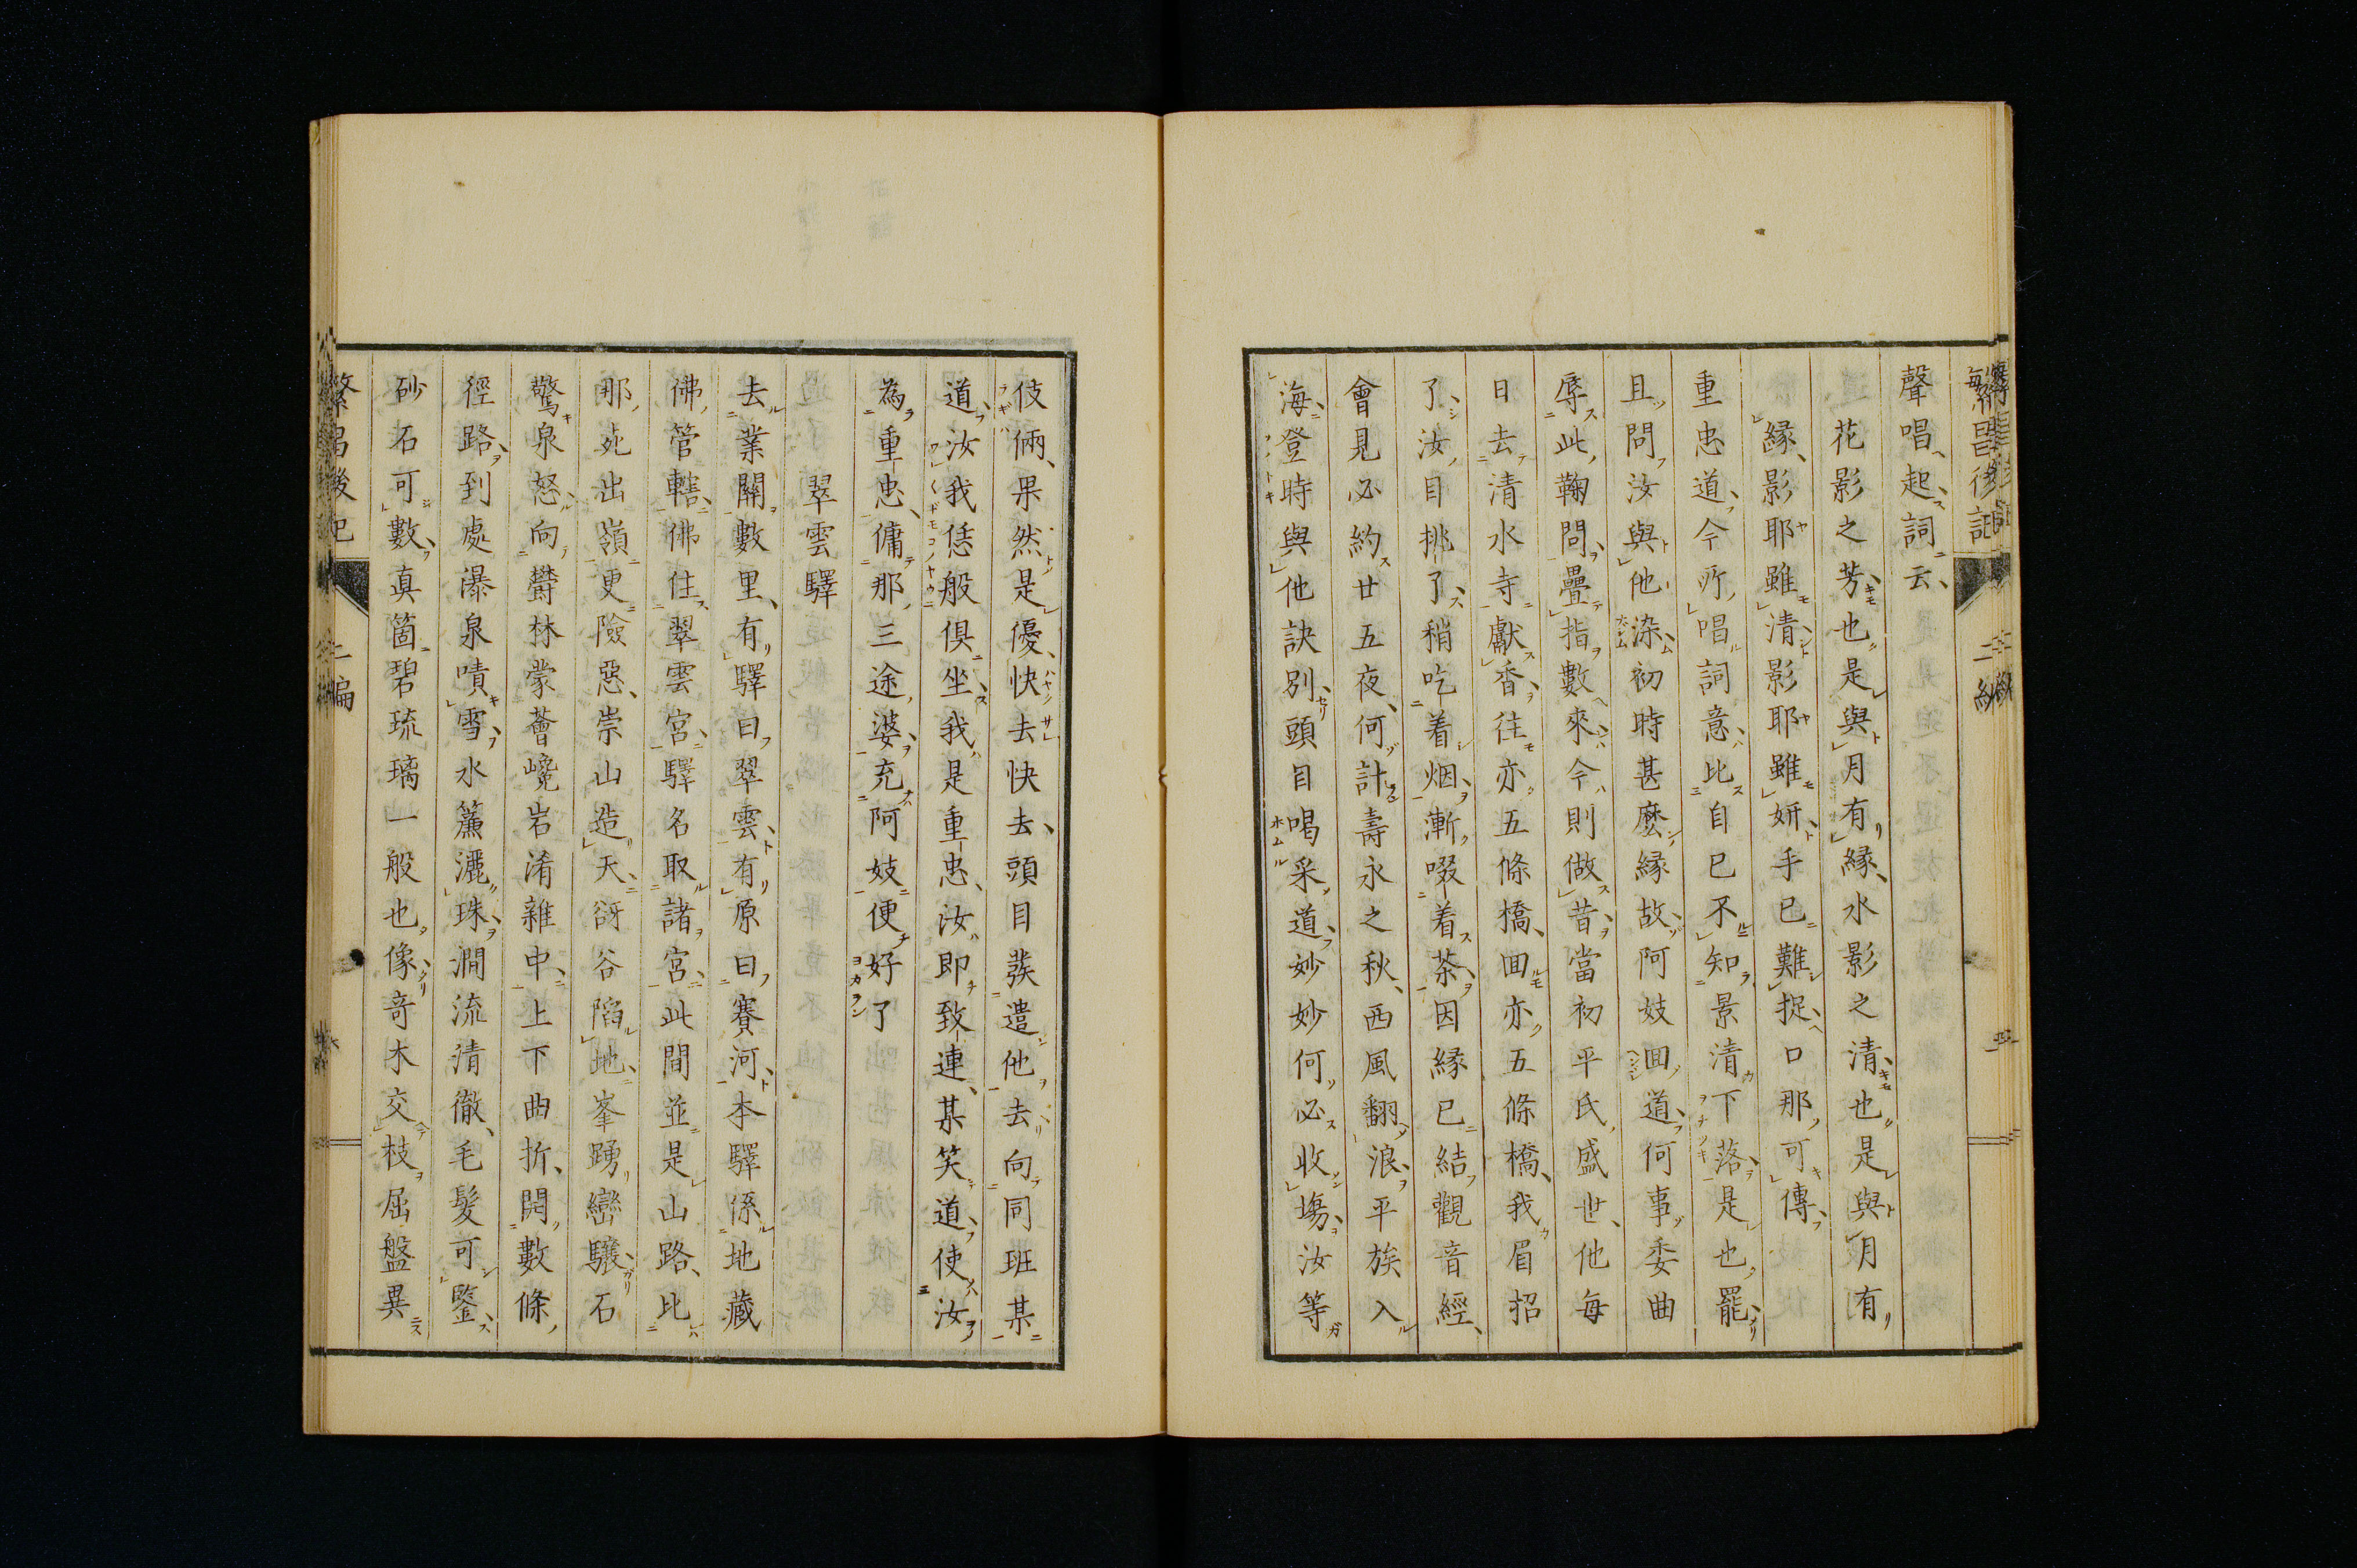 聲唱起詞云
花影之芳也是與月有緣水影之清也是與月有
緣影耶雖清影耶雖妍手已難捉口那可傳
重忠道今所唱詞意比自己不知景清下落是也罷
且問汝與他染初時甚麼緣故阿妓回道何事委曲
辱此鞠問疊指數來今則做昔當初平氏盛世他每
日去清水寺獻香往亦五條橋回亦五條橋我眉招
了汝目挑了稍吃着烟漸啜着茶因緣已結觀音經
會見必約廿五夜何計壽永之秋西風翻浪平族入
海登時與他訣別頭目喝采道妙妙何必收場汝等
伎倆果然是優快去快去頭目發遣他去向同班某
道汝我恁般俱坐我是重忠汝即致連某笑道使汝
為重忠傭那三途婆充阿妓便好了
翠雲驛
去業關數里有驛曰翠雲有原曰賽河本驛係地藏
佛管轄佛住翠雲宮驛名取諸宮此間並是山路比
那死出嶺更險惡崇山造天谺谷陷地峯踴巒驤石
驚泉怒向欝林蒙薈巉岩淆雜中上下曲折開數條
徑路到處瀑泉嘖雪水簾灑珠澗流清徹毛髮可鑒
砂石可數真箇碧琉璃一般也像奇木交枝屈盤異
繁昌後記
二編